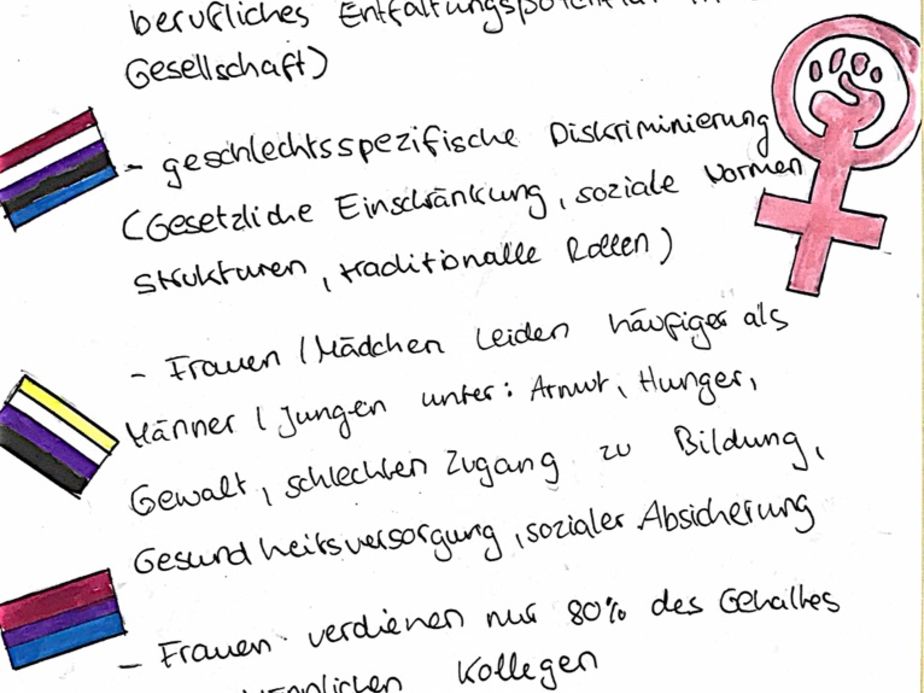 berufliches Entfaltungspotential in
Gesellschaft)
- geschlechtsspezifische Diskriminierung
(Gesetzliche Einschränkung, soziale Normen
Strukturen, traditionalle Rollen)
- Frauen / Mädchen leiden häufiger als
Männer / Jungen unter: Armut, Hunger,
Gewalt, schlechten Zugang zu Bildung,
Gesundheitsversorgung, sozialer Absicherung
- Frauen verdienen nur 80% des Gehaltes
männlichen Kollegen